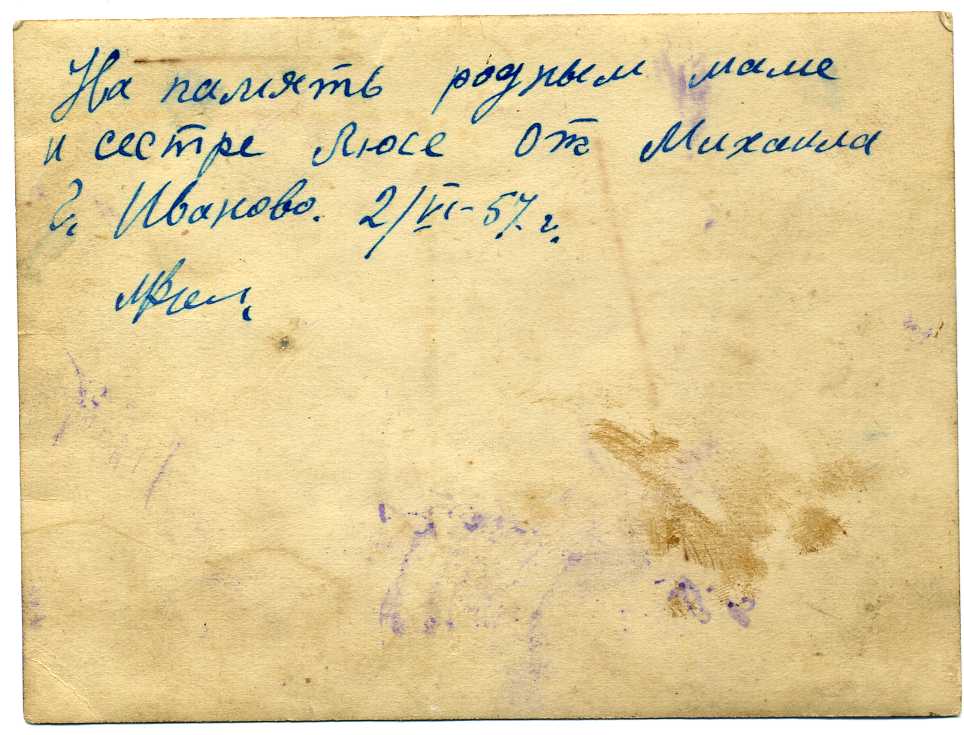 На память родным маме
и сестре Люсе от Михаила
г. Иваново. 2/VI-57. г.